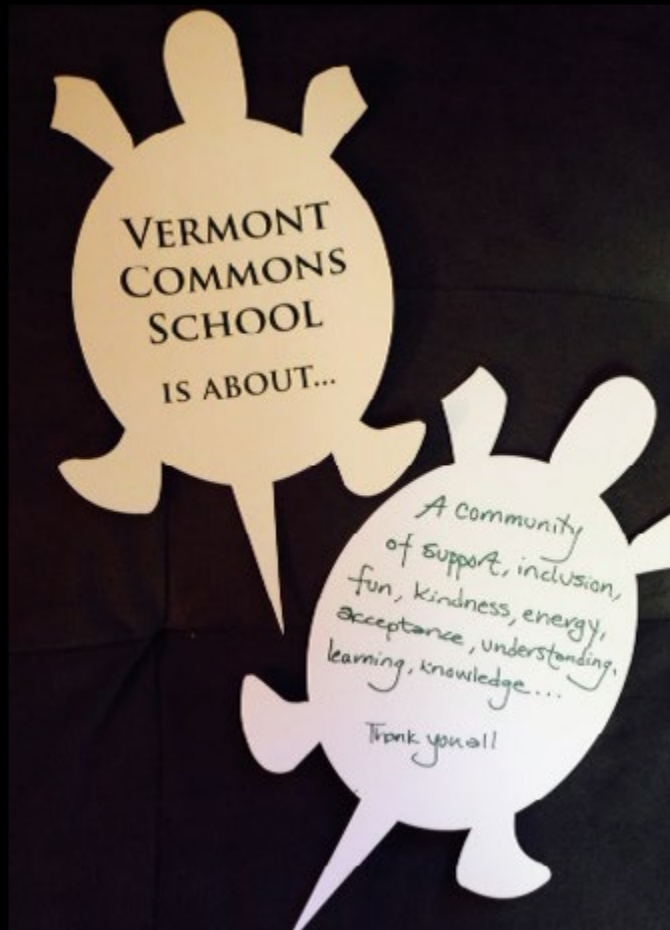 VERMONT
COMMONS
SCHOOL
IS ABOUT...
A community
of support, inclusion,
fun, kindness, energy,
acceptance, understanding,
learning, knowledge....
Thank you all